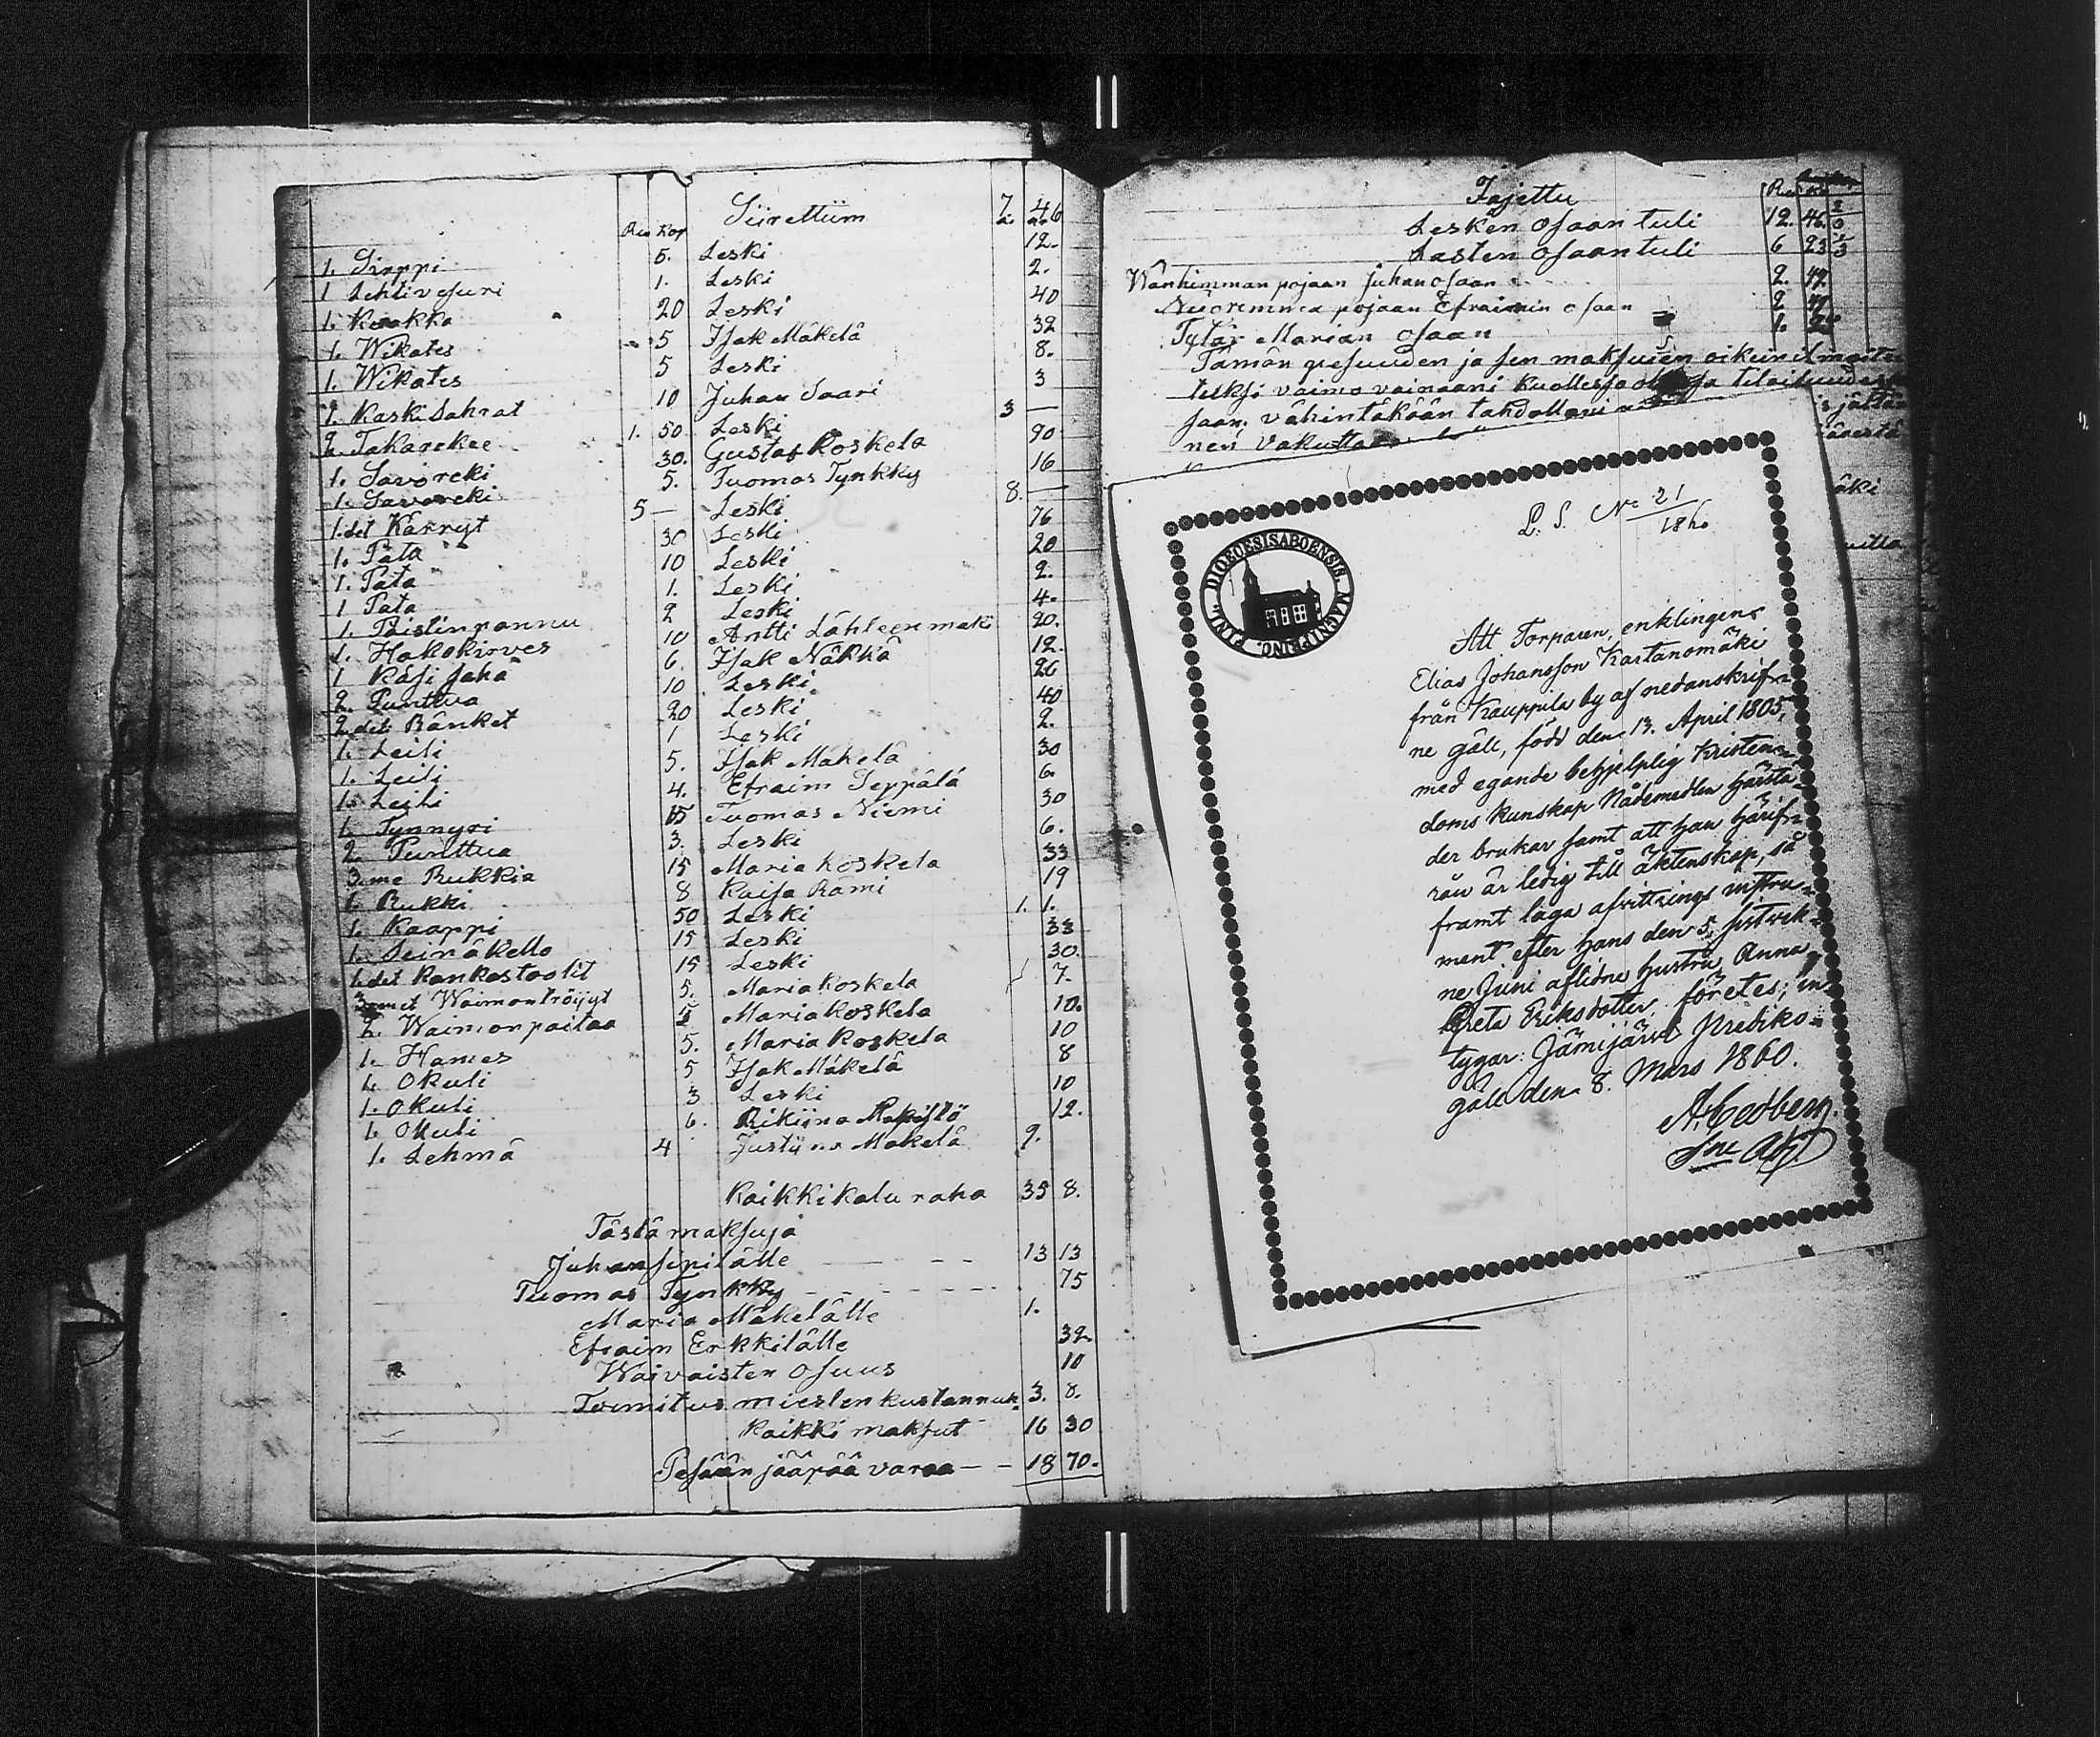 Siirettiim 7. 46
Ru Kop
1. Sirppi 6. Leski 12.
1 Lehtivesuri 1. Leski 2.
1. Kuokka 20 Leski 40
1. Wikates 5 Isak Mäkelä 32
1. Wikates 5 Leski 8.
2. Kaski Sahrat 10 Juhan Saari 3
2. Takarekee 1. 50 Leski 3 —
1. Savoreki 30. Gustaf Koskela 90
1. Savoreki 5. Tuomas Tynkky 16
1. det Kärryt 5 — Leski 8. —
1. Pata 30 Leski 76
1. Pata 10 Leski 20
1 Pata 1. Leski 2.
1. Paistinpannu 2 Leski 4.
1. Hakokirves 10 Antti Lähteenmäki 20.
1 Käsi saha 6. Isak Näkkä 12.
2. Punttua 10 Leski. 26
2. det Bänket 20 Leski 40
1. Leili 1 Leski 2.
1. Leili 5. Isak Mäkelä 30
1. Leili 4. Efraim Seppälä 6.
1. Tynnyri 15 Tuomas Niemi 30
2. Punttua 3. Leski 6.
3. me Rukkia 15 Maria Koskela 33
1. Rukki 8 Kaisa Rämi 19
1. Kaappi 50 Leski 1. 1.
1. Seinäkello 15 Leski 33
1. det Kankastoolit 15 Leski 30.
3 met Waimon tröijyt 5. Maria Koskela 7.
2. Waimon paitaa 5 Maria Koskela 10.
1. Hames 5. Maria Koskela 10
1. Okuli 5 Isak Mäkelä 8
1. Okuli 3 Leski 10
1. Okuli 6. Rikiina 12.
1. Lehmä 4 Justiina Mäkelä 9.
Kaikki kalu raha 35 8.
Tästä maksuja
Juhan sepilälle — — — 13 13
Tuomas Tynkky — — — 75
Maria Mäkelälle 1.
Efraim Erkkilälle 32.
Waivaisten osuus 10
Toimitus miesten kustannuk. 3. 8.
Kaikki maksut 16 30
Pesään jääpää varaa — — 18 70.
Jajettu
Lesken osaan tuli 12. 46.
Lasten osaan tuli 6 23
Wänhimman pojaan Juhan osaan 2. 49.
Nuoremman pojaan Efraimin osaan 2 49
Tytär Marian osaan 1.
Tämän pesuuden ja sen maksuien oikein ilmoite
teiksi vaimo vainaani kuollessa
saan, vähintäkään tahdollani
nen vakuttaa
jältä
äki
L. S. No 21/1860
DIOECESIS ABOENSIS. MAGN. PRINC. FINL.
Att Torparen, enklingen
Elias Johansson Kartanomäki
från Kauppila by af nedanskrif-
ne gäll, född den 13. April 1805,
med egande behjelplig Kristen-
doms kunskap Nådemedlen härstä-
der brukar samt att han härif-
rån är ledig till äktenskap, så
framt laga afvittrings instru-
ment efter hans den 5. sistvek-
ne Juni aflidne hustru Anna
Greta Eriksdotter, företes, in-
tygar: Jämijärvi Prediko-
gäll den 8. Mars 1860.
A. Cedberg.